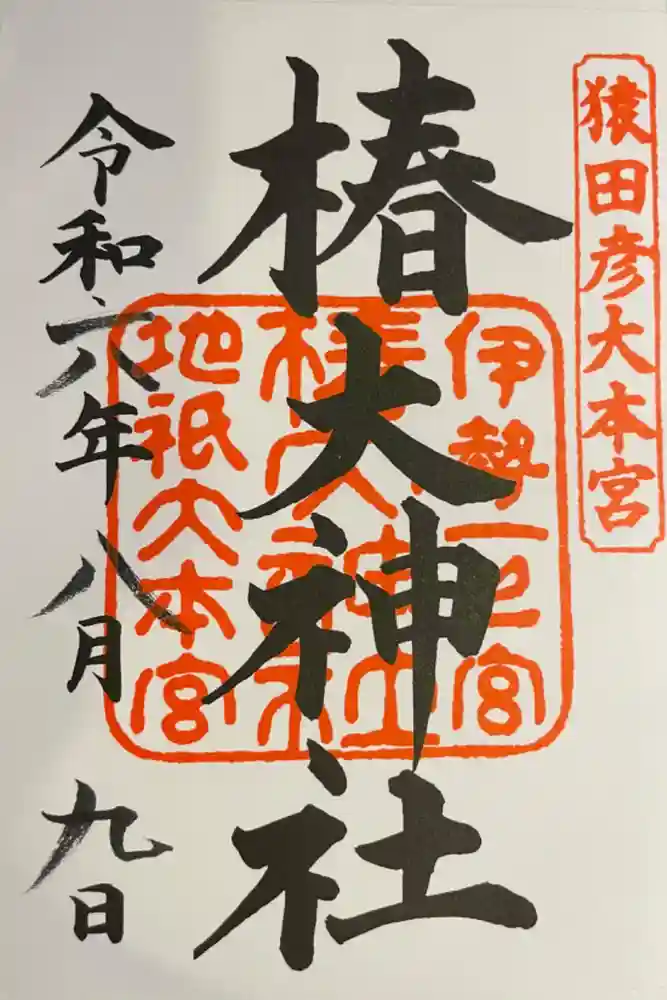 猿田彦大本宮
椿大神社
伊勢一之宮
椿大神社
地祇大本宮
令和六年八月九日